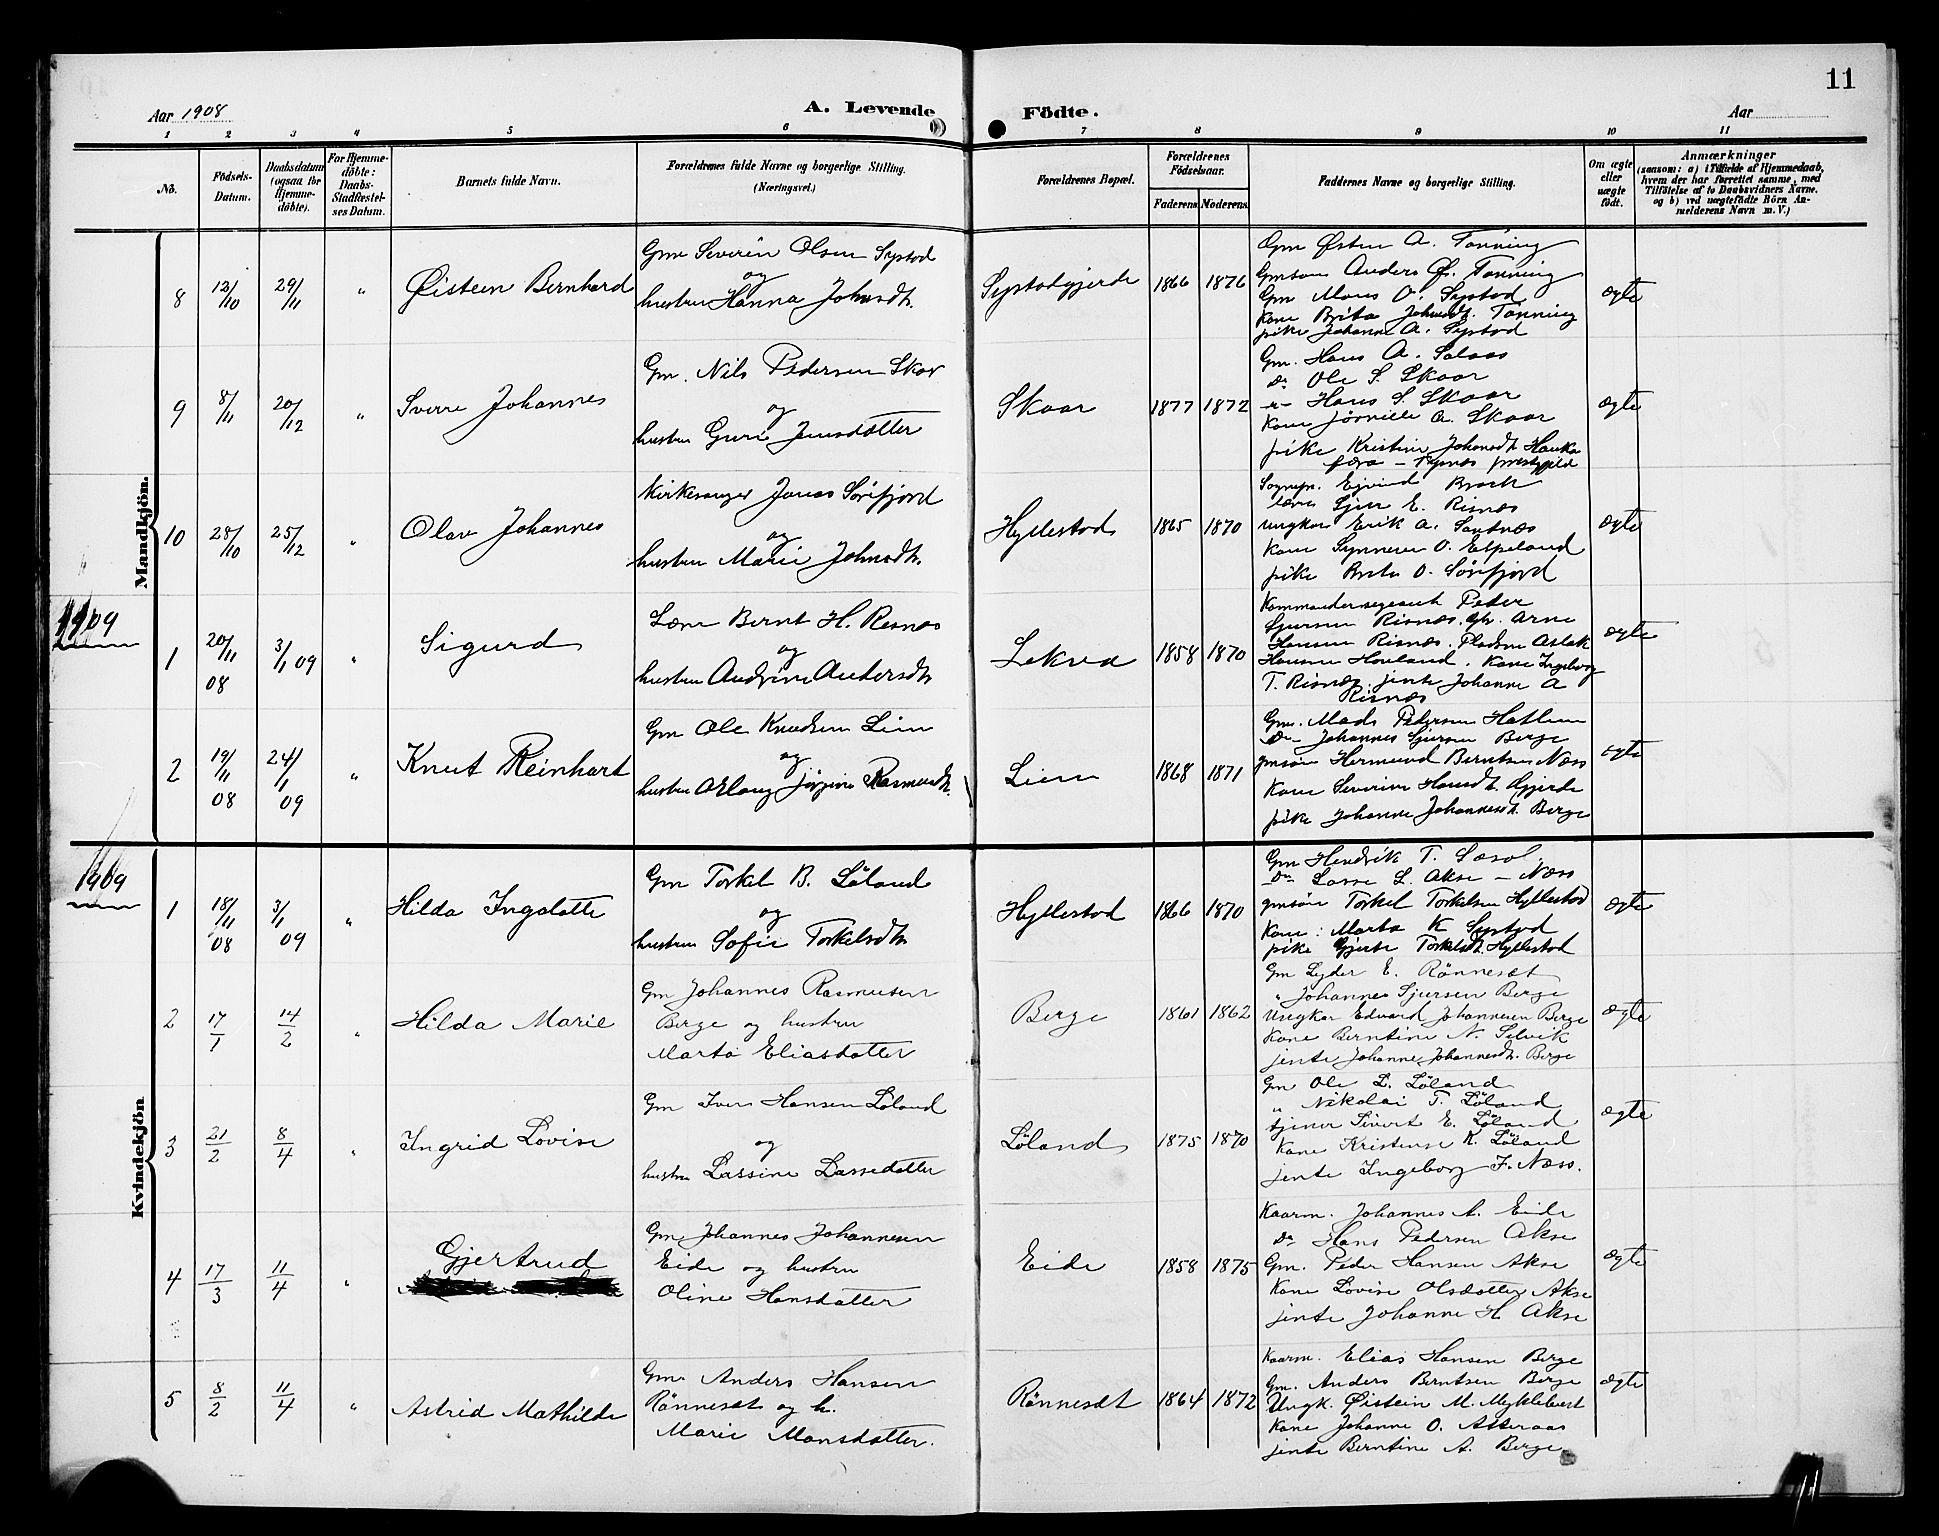 11
Aar 1908 A. Levende Födte. Aar
1 2 3 4 5 6 7 8 9 10 11
No. Födsels-Datum. Daabsdatum (ogsaa for Hjemme-döbte). For Hjemme-döbte: Daabs-Stadfæstel-ses Datum. Barnets fulde Navn. Forældrenes fulde Navne og borgerlige Stilling. (Næringsvei.) Forældrenes Bopæl. Forældrenes Födselsaar. Faderens Moderens Faddernes Navne og borgerlige Stilling. Om ægte eller uægte födt. Anmærkninger (saasom: a) i Tilfælde af Hjemmedaab, hvem der har forrettet samme, med Tilföielse af to Daabsvidners Navne. og b) ved uægtefödte Börn An-melderens Navn m. V.)
Mandkjön.
8 12/10 29/11 " Øisteen Bernhard
Gm Severin Olsen Systad
og
hustru Hanna Johnsdtr
Systadgjerde 1866 1876
Gm Østen A. Tønning
Gmsøn Anders Ø. Tønning
Gm Mons O. Systad
Kone Brita Johnsdt. Tønning
pike Johanne A. Systad
ægte
9 8/11 20/12 " Sverre Johannes
Gm. Nils Pedersen Skor
og
hustru Guri Jensdatter
Skaar 1877 1872
Gm. Hans A. Salaas
Do Ole S. Skaar
Hans S. Skaar
Kone A. Skaar
pike Kristine Johansdt.
ægte
10 28/10 25/12 " Olav Johannes
Kirkesanger Jonas Sörefjord
og
hustru Marie Johnsdtr.
Hyllestad 1865 1870
Sognepr. Ejvind
E. Risnæs
ungkar Erik A. Santnæs
Kone Synneve O. Espeland
pike Brita O. Sörefjord
ægte
1909
1 20/11 08 3/1 09 " Sigurd
Bernt H. Risnæs
og
hustru Andrine Andersdtr
Lekva 1858 1870
Peter
Sjursen Risnæs. Arne
Hansen Risnæs. Aslak
Hansen Hovland. Kone Ingeborg
T. Risnæs. jente Johanne A
Risnæs
ægte
2 19/11 08 24/1 09 " Knut Reinhart
Gm Ole Knudsen Lien
og
hustru Jörgine Rasmusdt.
Lien 1868 1871
Gm. Mads Pedersen Hatlem
Do Johannes Sjursen Berge
gmsön Hermund Berntsen Næss
Kone Severine Hansdt. Gjerde
pike Johanne Johannesdt. Berge
ægte
Kvindekjön
1909
1 18/11 08 3/1 09 " Hilda Ingolotte
Gm Torkel B. Löland
og
hustru Sofie Torkelsdtr
Hyllestad 1866 1870
Gm Hendrik T. Sæsol
Do Lasse L. Akse - Næss
gmsön Torkel Torkelsen Hyllestad
Kone: Marta K Systad
pike Gjerte Torkelsdt. Hyllestad
ægte
2 17/1 14/2 " Hilda Marie
Gm Johannes Rasmusen
Berge og hustru
Marta Eliasdatter
Berge 1861 1862
Gm Lyder E. Rönneset
" Johannes Sjursen Berge
Ungkar Edvard Johannesen Berge
Kone Berntine N. Selvik
jente Johanne Johannesdt. Berge
ægte
3 21/2 8/4 " Ingrid Lovise
Gm Iver Hansen Löland
og
hustru Lassine Lassedatter
Löland 1875 1870
Gm Ole L. Löland
" Nikolai T. Löland
tjener Sivert E. Löland
Kone Kristense K. Löland
jente Ingeborg J. Næss.
ægte
4 17/3 11/4 " Gjertrud
Gm Johannes Johannesen
Eide og hustru
Oline Hansdatter
Eide 1858 1875
Kaarm. Johannes A. Eide
Do Hans Pedersen Akse
Gm. Peder Hansen Akse
Kone Lovise Olsdatter Akse
jente Johanne H Akse
ægte
5 8/2 11/4 " Astrid Mathilde
Gm. Anders Hansen
Rönneset og h.
Marie Monsdatter.
Rönneset 1864 1872
Kaarm. Elias Hansen Berge
Gm. Anders Berntsen Berge
Ungk. Øistein M. Myklebust
Kone Johanne O. Atteraas
jente Berntine A. Berge
ægte